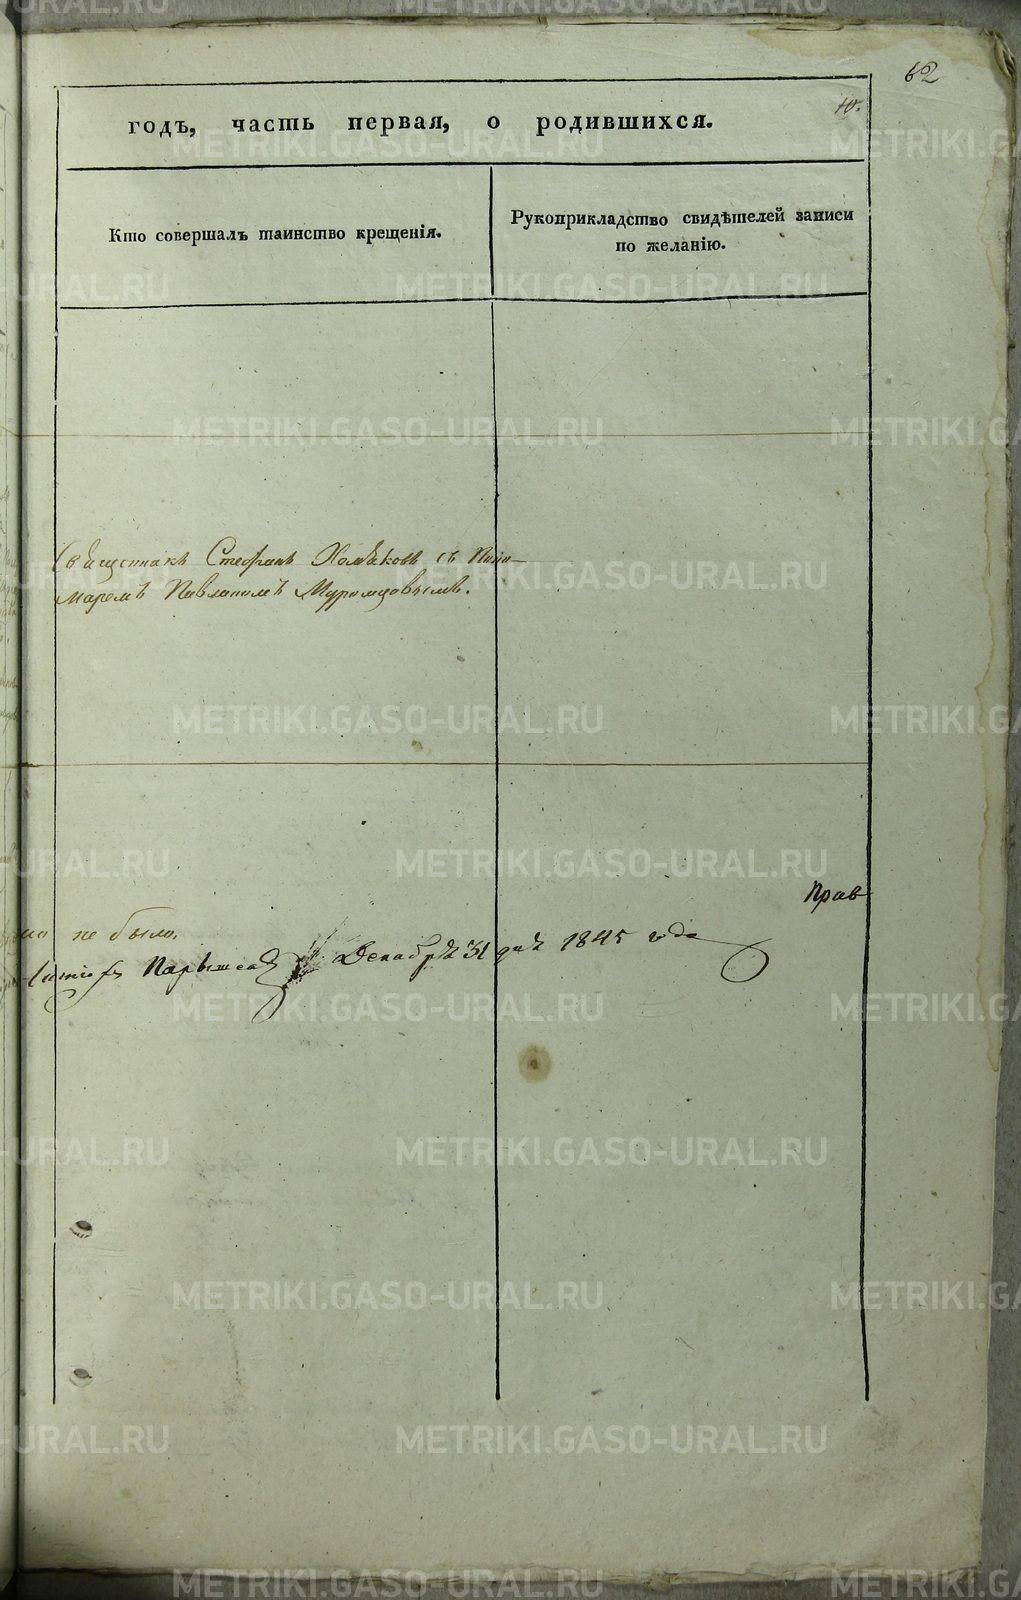 62
10.
годъ, часть первая, о родившихся.
Кто совершалъ таинство крещенія.
Рукоприкладство свидѣтелей записи
по желанію.
Священникъ Стефанъ Хомяковъ съ Поно-
маремъ Павлиномъ Муромцовымъ.
не было.
Прав
Декабрѣ 31 дня 1845 года
METRIKI.GASO-URAL.RU